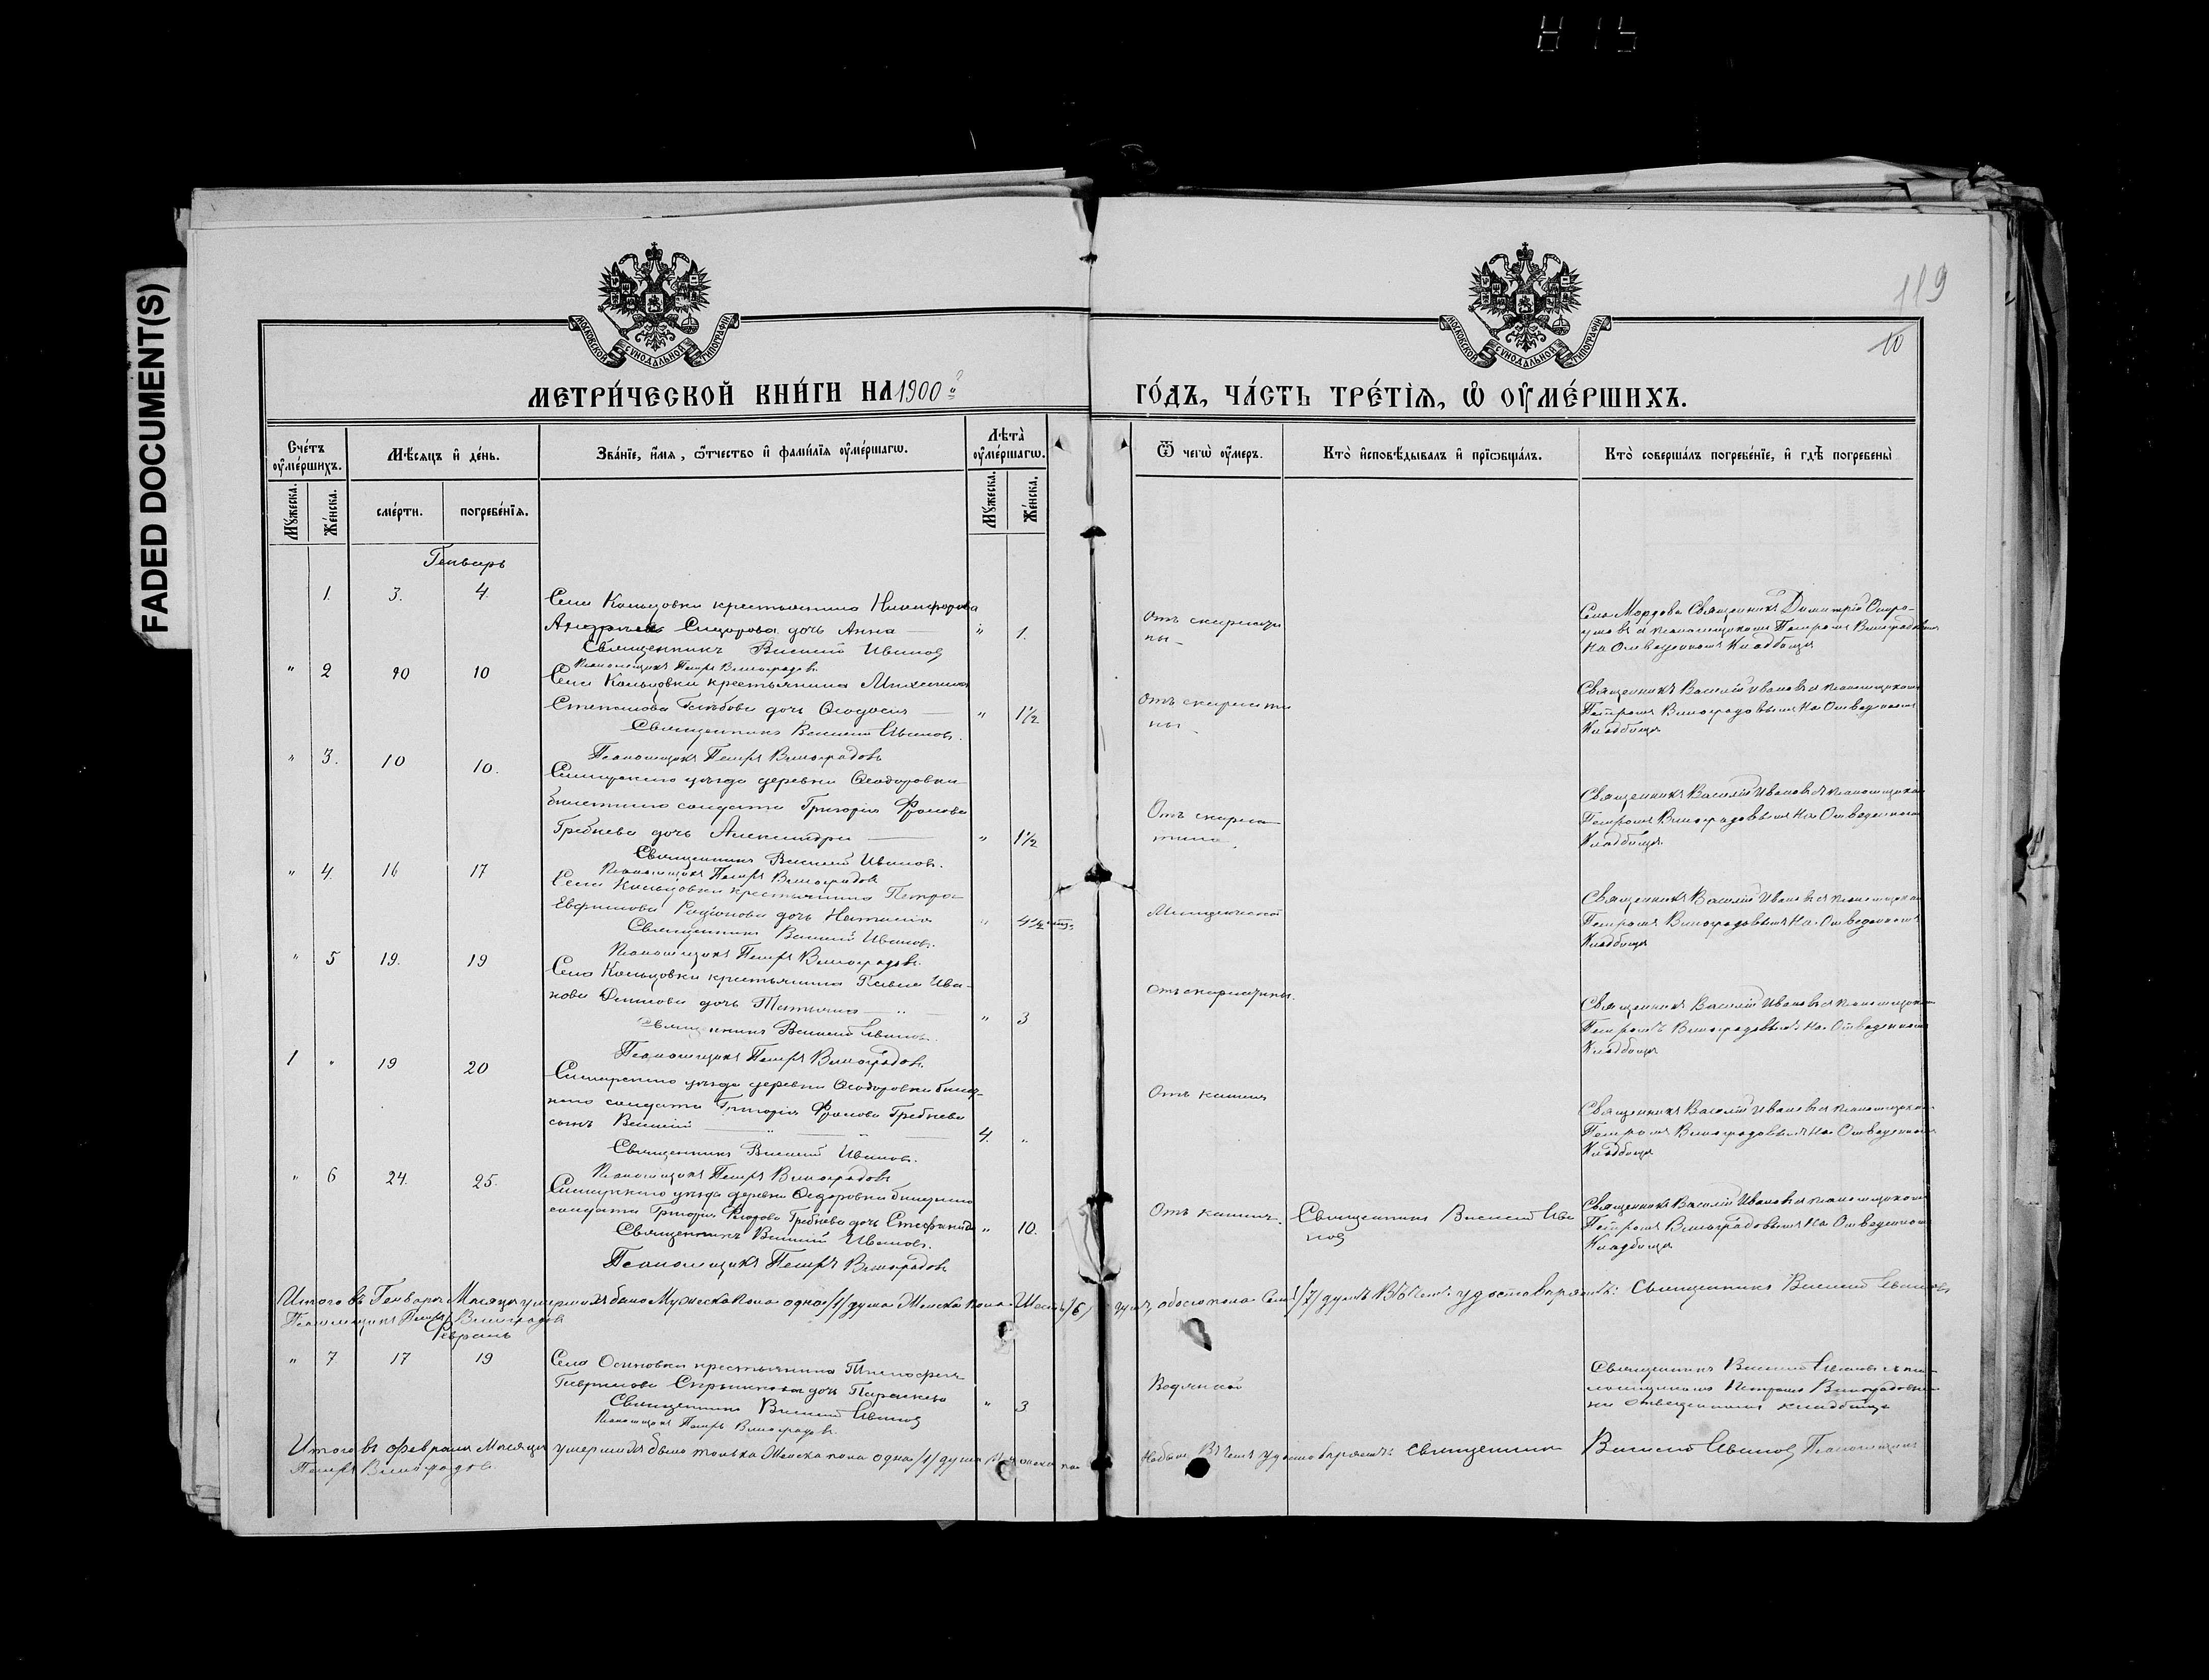 FADED DOCUMENT(S)
119
10
МОСКОВСКОЙ СѴНОДАЛЬНОЙ ТИПОГРАФІИ
МОСКОВСКОЙ СѴНОДАЛЬНОЙ ТИПОГРАФІИ
МЕТРИ́ЧЕСКОЙ КНИ́ГИ НА 1900 й
ГО́ДЪ, ЧА́СТЬ ТРЕ́ТІѦ, Ѡ҆ ОУ҆МЕ́РШИХЪ.
Сче́тъ оу҆ме́ршихъ.
Мѣ́сяцъ и҆ де́нь.
Зва́нїе, и҆́мя, ѻ҆́тчество и҆ фами́лїя оу҆ме́ршагѡ.
Лѣта̀ оу҆ме́ршагѡ.
Ѿ чегѡ̀ оу҆́меръ.
Кто̀ и҆сповѣ́дывалъ и҆ прїѡбща́лъ.
Кто̀ соверша́лъ погребе́нїе, и҆ гдѣ̀ погребены̀
Му́жеска.
Же́нска.
сме́рти.
погребе́нїя.
Му́жеска.
Же́нска.
Генварь
1. 3. 4.
Села Кольцовки крестьянина Никифорова
Сидорова дочь Анна — " 1.
Священникъ Василій Ивановъ
Псаломщикъ Петръ Виноградовъ
Отъ скарлати
ны —
Села Мордова Священникъ Димитрій
псаломщикомъ Петромъ Виноградовымъ
На Отведенномъ Кладбищѣ
" 2 10 10
Села Кольцовки крестьянина Михаила
Степанова Глѣбова дочь Ѳеодосія — " 1½
Священникъ Василій Ивановъ.
Псаломщикъ Петръ Виноградовъ
Отъ скарлати
ны —
Священникъ Василій Ивановъ съ псаломщикомъ
Петромъ Виноградовымъ На Отведенномъ
Кладбищѣ
" 3. 10 10.
уѣзда деревни Ѳеодоровки
билетнаго солдата Григорія Фролова
Гребнева дочь Александра — " 1½
Священникъ Василій Ивановъ.
Псаломщикъ Петръ Виноградовъ
Отъ скарла
тины.
Священникъ Василій Ивановъ съ псаломщикомъ
Петромъ Виноградовымъ На Отведенномъ
Кладбищѣ.
" 4. 16 17
Села Кольцовки крестьянина Петра
Евфимова Родіонова дочь Наталія "
Священникъ Василій Ивановъ.
Псаломщикъ Петръ Виноградовъ.
Младенческой
Священникъ Василій Ивановъ съ псаломщикомъ
Петромъ Виноградовымъ На Отведенномъ
Кладбищѣ
" 5 19. 19
Села Кольцовки крестьянина Павла Ива-
нова Данилова дочь Татьяна — " — " 3
Священникъ Василій Ивановъ.
Псаломщикъ Петръ Виноградовъ.
Отъ скарлатины.
Священникъ Василій Ивановъ съ псаломщикомъ
Петромъ Виноградовымъ На Отведенномъ
Кладбищѣ
1 " 19 20
уѣзда деревни Ѳеодоровки билет-
наго солдата Григорія Фролова Гребнева
сынъ Василій — " — " — 4. "
Священникъ Василій Ивановъ.
Псаломщикъ Петръ Виноградовъ
Отъ кашля
Священникъ Василій Ивановъ съ псаломщикомъ
Петромъ Виноградовымъ На Отведенномъ
Кладбищѣ
" 6 24. 25.
уѣзда деревни Ѳедоровки билетнаго
солдата Григорія Фролова Гребнева дочь Стефанида " 10.
Священникъ Василій Ивановъ.
Псаломщикъ Петръ Виноградовъ
Отъ кашля.
Священникъ Василій Ива
новъ
Священникъ Василій Ивановъ съ псаломщикомъ
Петромъ Виноградовымъ На Отведенномъ
Кладбищѣ
Итого въ Генварѣ Мѣсяцѣ умершихъ было Мужеска пола одна /1/ душа Женска пола Шесть /6/ душъ обоего пола Семь /7/ душъ Въ чемъ удостовѣряемъ: Священникъ Василій Ивановъ
Псаломщикъ Петръ Виноградовъ
Февраль
" 7 17 19
Села Осиновки крестьянина
Гаврилова дочь Параскева " 3
Священникъ Василій Ивановъ
Псаломщикъ Петръ Виноградовъ.
Водянкой
Священникъ Василій Ивановъ съ пса-
ломщикомъ Петромъ Виноградовымъ
на отведенномъ кладбищѣ
Итого въ Февралѣ Мѣсяцѣ умершихъ было только Женска пола одна /1/ душа Мужеска по Небыло Въ чемъ удостовѣряемъ: Священникъ Василій Ивановъ Псаломщикъ
Петръ Виноградовъ.